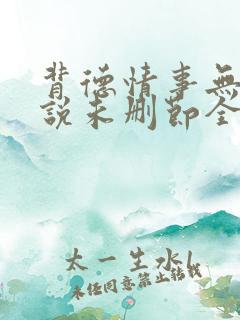 背德情事無
説未删節全
太一生水l
未任同意禁止转载